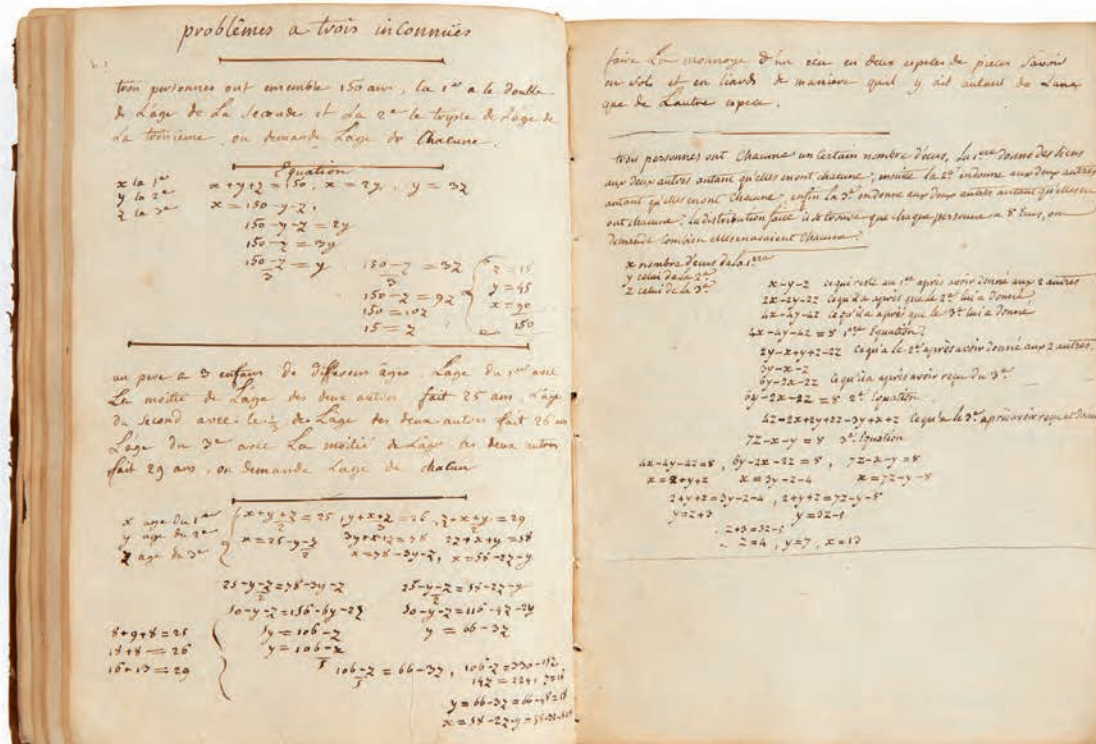 problêmes a trois inconnües
trois personnes ont ensemble 150 ans, la 1ere a le double
de L'age de La seconde et La 2e le triple de L'age de
La troisieme, on demande L'age de Chacune.
Equation
x la 1re
y la 2e
z la 3e
x+y+z=150, x=2y, y=3z
x=150-y-z,
150-y-z=2y
150-z=3y
150-z/3=y, 150-z/3=3z
150-z=9z
150=10z
15=z
z=15
y=45
x=90
150
un pere a 3 enfans de differens âges, L'age du 1er avec
La moitié de L'age des deux autres fait 25 ans, L'age
du second avec le 1/3 de L'age des deux autres fait 26 ans
L'age du 3e avec La moitié de L'age des deux autres
fait 29 ans, on demande L'age de chacun
x age du 1er
y age du 2e
z age du 3e
x+y+z/2=25, y+x+z/3=26, z+x+y/2=29
x=25-y-z/2 3y+x+z=78 2z+x+y=58
x=78-3y-z, x=58-2z-y
25-y-z/2=78-3y-z 25-y-z/2=58-2z-y
50-y-z=156-6y-2z 50-y-z=116-4z-2y
5y=106-z y=66-3z
y=106-z/5
8+9+8=25
18+8=26
16+13=29
106-z/5=66-3z, 106-z=330-15z
14z=224, z=16
y=66-3z=66-48=18
x=58-2z-y=58-32-18=8
faire La monnoye d'un écu en deux especes de pieces savoir
en sols et en liards de maniere quil y ait autant de L'une
que de L'autre espece.
trois personnes ont Chacune un certain nombre d'ecus, La 1ere donne des siens
aux deux autres autant qu'elles en ont chacune, ensuite la 2e en donne aux deux autres
autant qu'elles en ont chacune, enfin la 3e en donne aux deux autres autant qu'elles en
ont chacune; la distribution faite il se trouve que chaque personne a 8 Ecus, on
demande Combien elles en avaient Chacune?
x nombre d'ecus de la 1ere
y celui de la 2e
z celui de la 3e
x-y-z ce qui reste au 1er apres avoir donné aux 2 autres
2x-2y-2z ce qu'il a après que le 2e lui a donné,
4x-4y-4z ce qu'il a après que le 3e lui a donné
4x-4y-4z=8 1ere Equation?
2y-x+y+z-2z ce qu'a le 2e après avoir donné aux 2 autres.
3y-x-z
6y-2x-2z ce qu'il a après avoir reçu du 3e
6y-2x-2z=8 2e Equation
4z-2x+2y+2z-3y+x+z ce qu'a le 3e après avoir reçu et donné
7z-x-y=8 3e Equation
4x-4y-4z=8, 6y-2x-2z=8, 7z-x-y=8
x=2+y+z x=3y-z-4 x=7z-y-8
2+y+z=3y-z-4, 2+y+z=7z-y-8
y=z+3 y=3z-5
z+3=3z-5
z=4, y=7, x=13